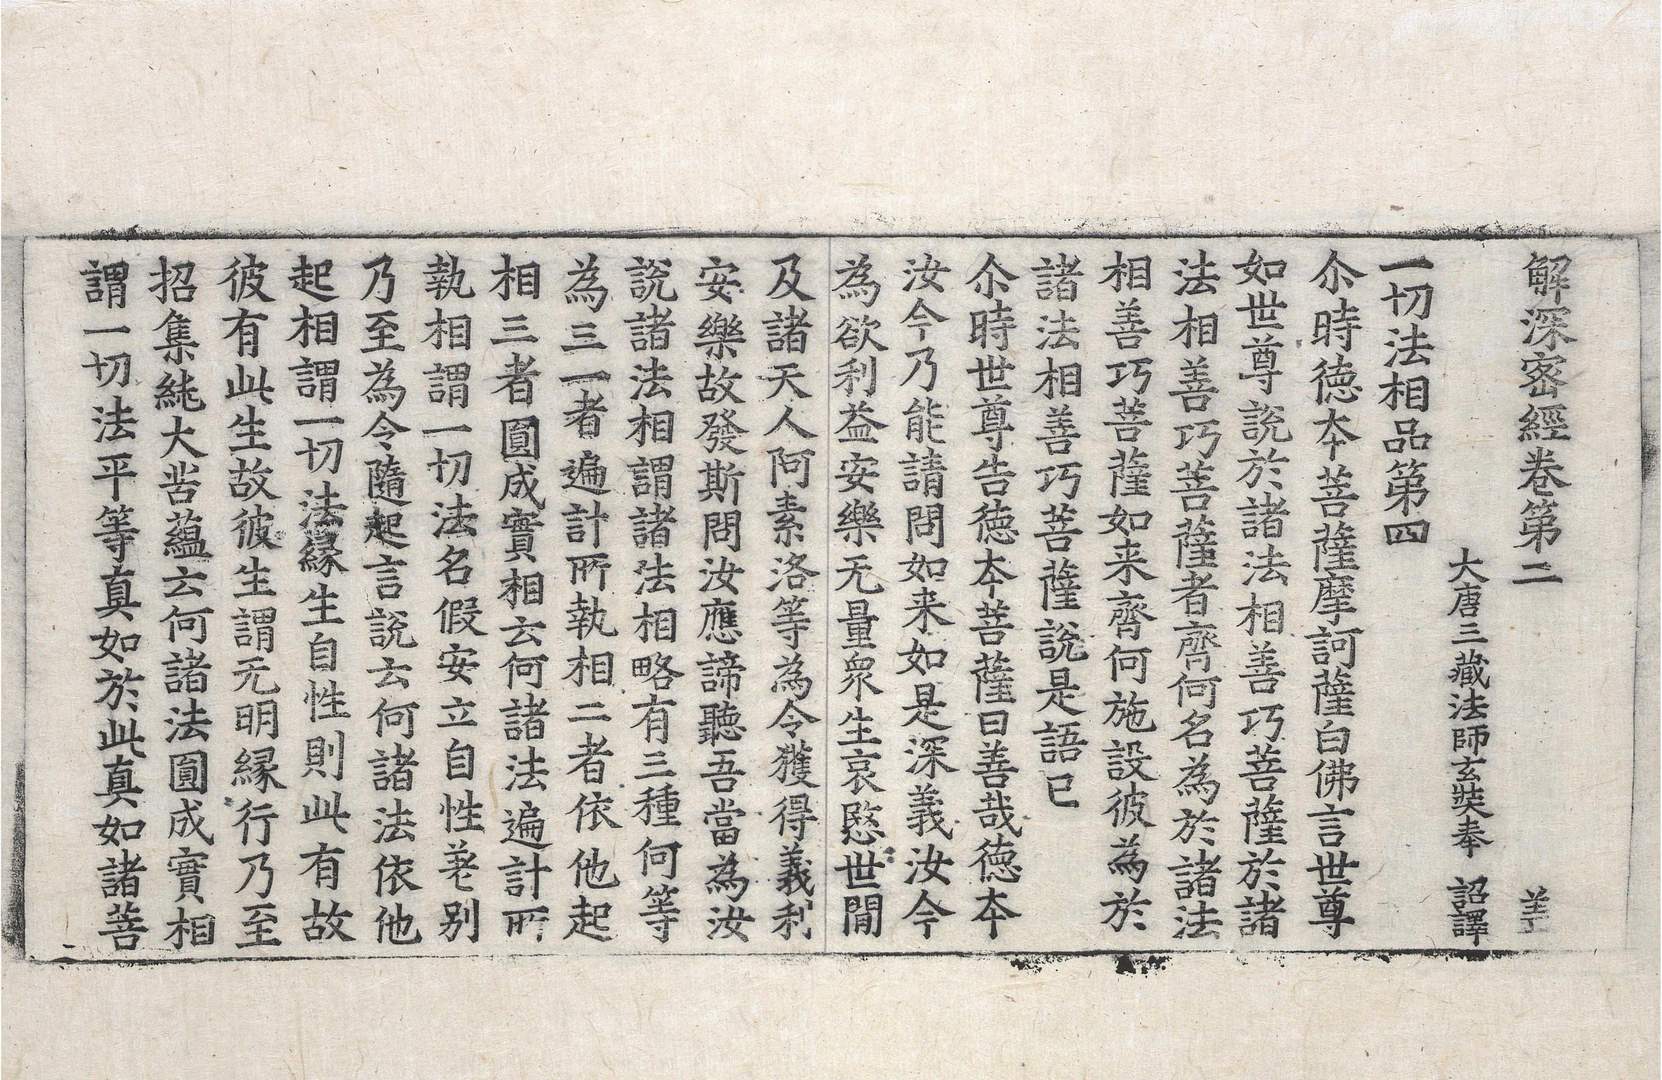 解深密經卷第二 羌
大唐三藏法師玄奘奉 詔譯
一切法相品第四
尒時德夲菩薩摩訶薩白佛言世尊
如世尊說於諸法相善巧菩薩於諸
法相善巧菩薩者齊何名為於諸法
相善巧菩薩如来齊何施設彼為於
諸法相善巧菩薩說是語已
尒時世尊告德夲菩薩曰善哉德夲
汝今乃能請問如来如是深義汝今
為欲利益安樂无量衆生哀愍世閒
及諸天人阿素洛等為令獲得義利
安樂故發斯問汝應諦聽吾當為汝
說諸法相謂諸法相略有三種何等
為三一者遍計所執相二者依他起
相三者圓成實相云何諸法遍計所
執相謂一切法名假安立自性差別
乃至為令隨起言說云何諸法依他
起相謂一切法緣生自性則此有故
彼有此生故彼生謂无明緣行乃至
招集純大苦蘊云何諸法圓成實相
謂一切法平等真如於此真如諸菩